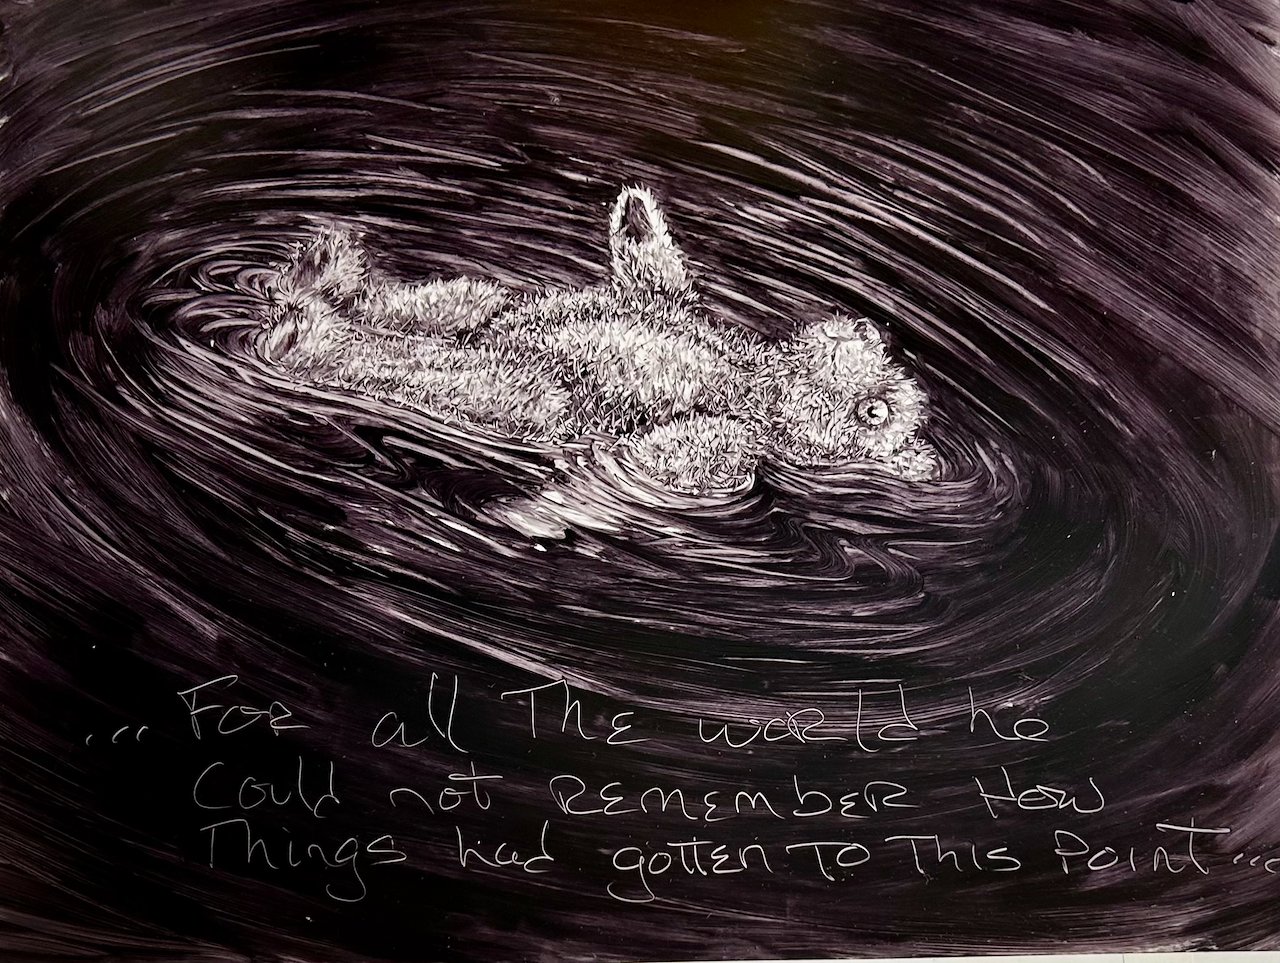 ... For all The world he
Could not REMEMBER How
Things had gotten To This Point ...